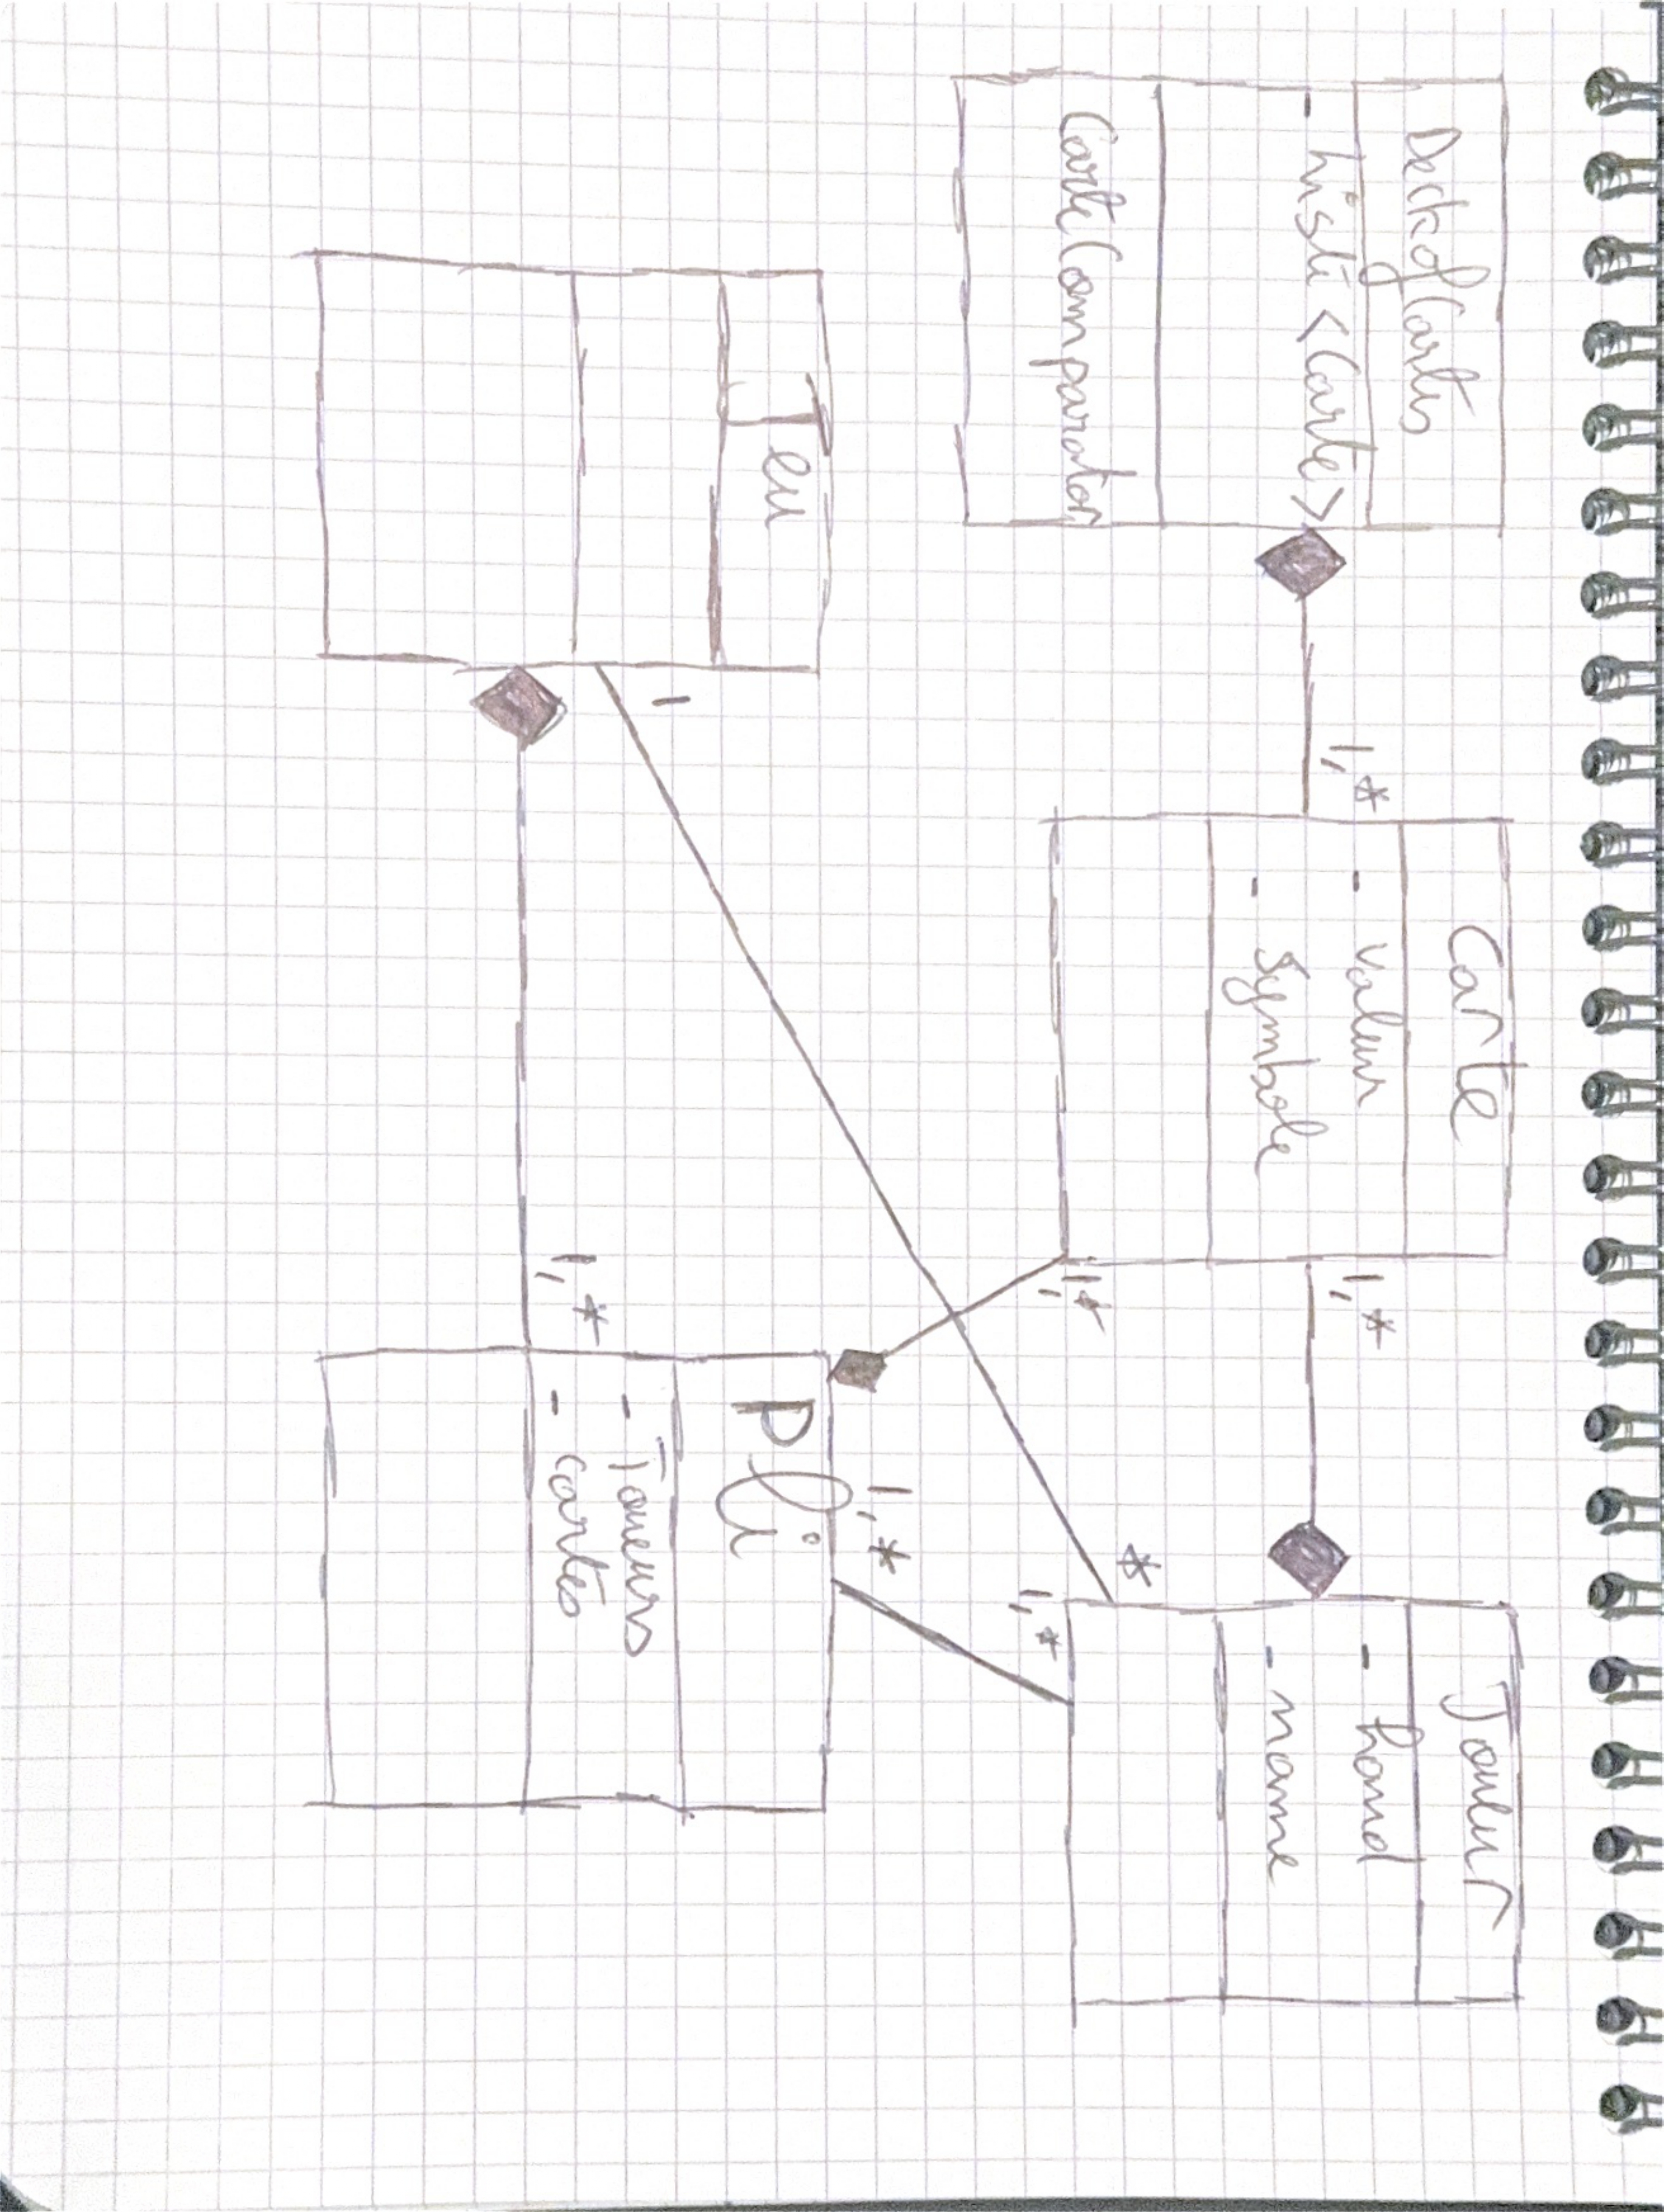 DeckofCartes
- Liste <Carte>
CarteComparator
1,*
Carte
- valeur
- Symbole
1,*
1,*
Joueur
- hand
- name
*
1,*
Jeu
1
1,*
1,*
Pli
- Joueurs
- cartes